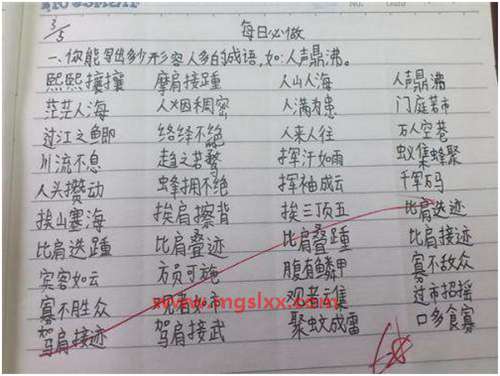 3/5
每日必做
一、你能写出多少形容人多的成语,如:人声鼎沸。
熙熙攘攘 摩肩接踵 人山人海 人声鼎沸
茫茫人海 人烟稠密 人满为患 门庭若市
过江之鲫 络绎不绝 人来人往 万人空巷
川流不息 趋之若鹜 挥汗如雨 蚁集蜂聚
人头攒动 蜂拥不绝 挥袖成云 千军万马
挨山塞海 挨肩擦背 挨三顶五 比肩迭迹
比肩迭踵 比肩叠迹 比肩叠踵 比肩接迹
宾客如云 方员可施 腹有鳞甲 寡不敌众
寡不胜众 观者如市 观者云集 过市招摇
驾肩接迹 驾肩接武 聚蚊成雷 口多食寡
www.mgslxx.com